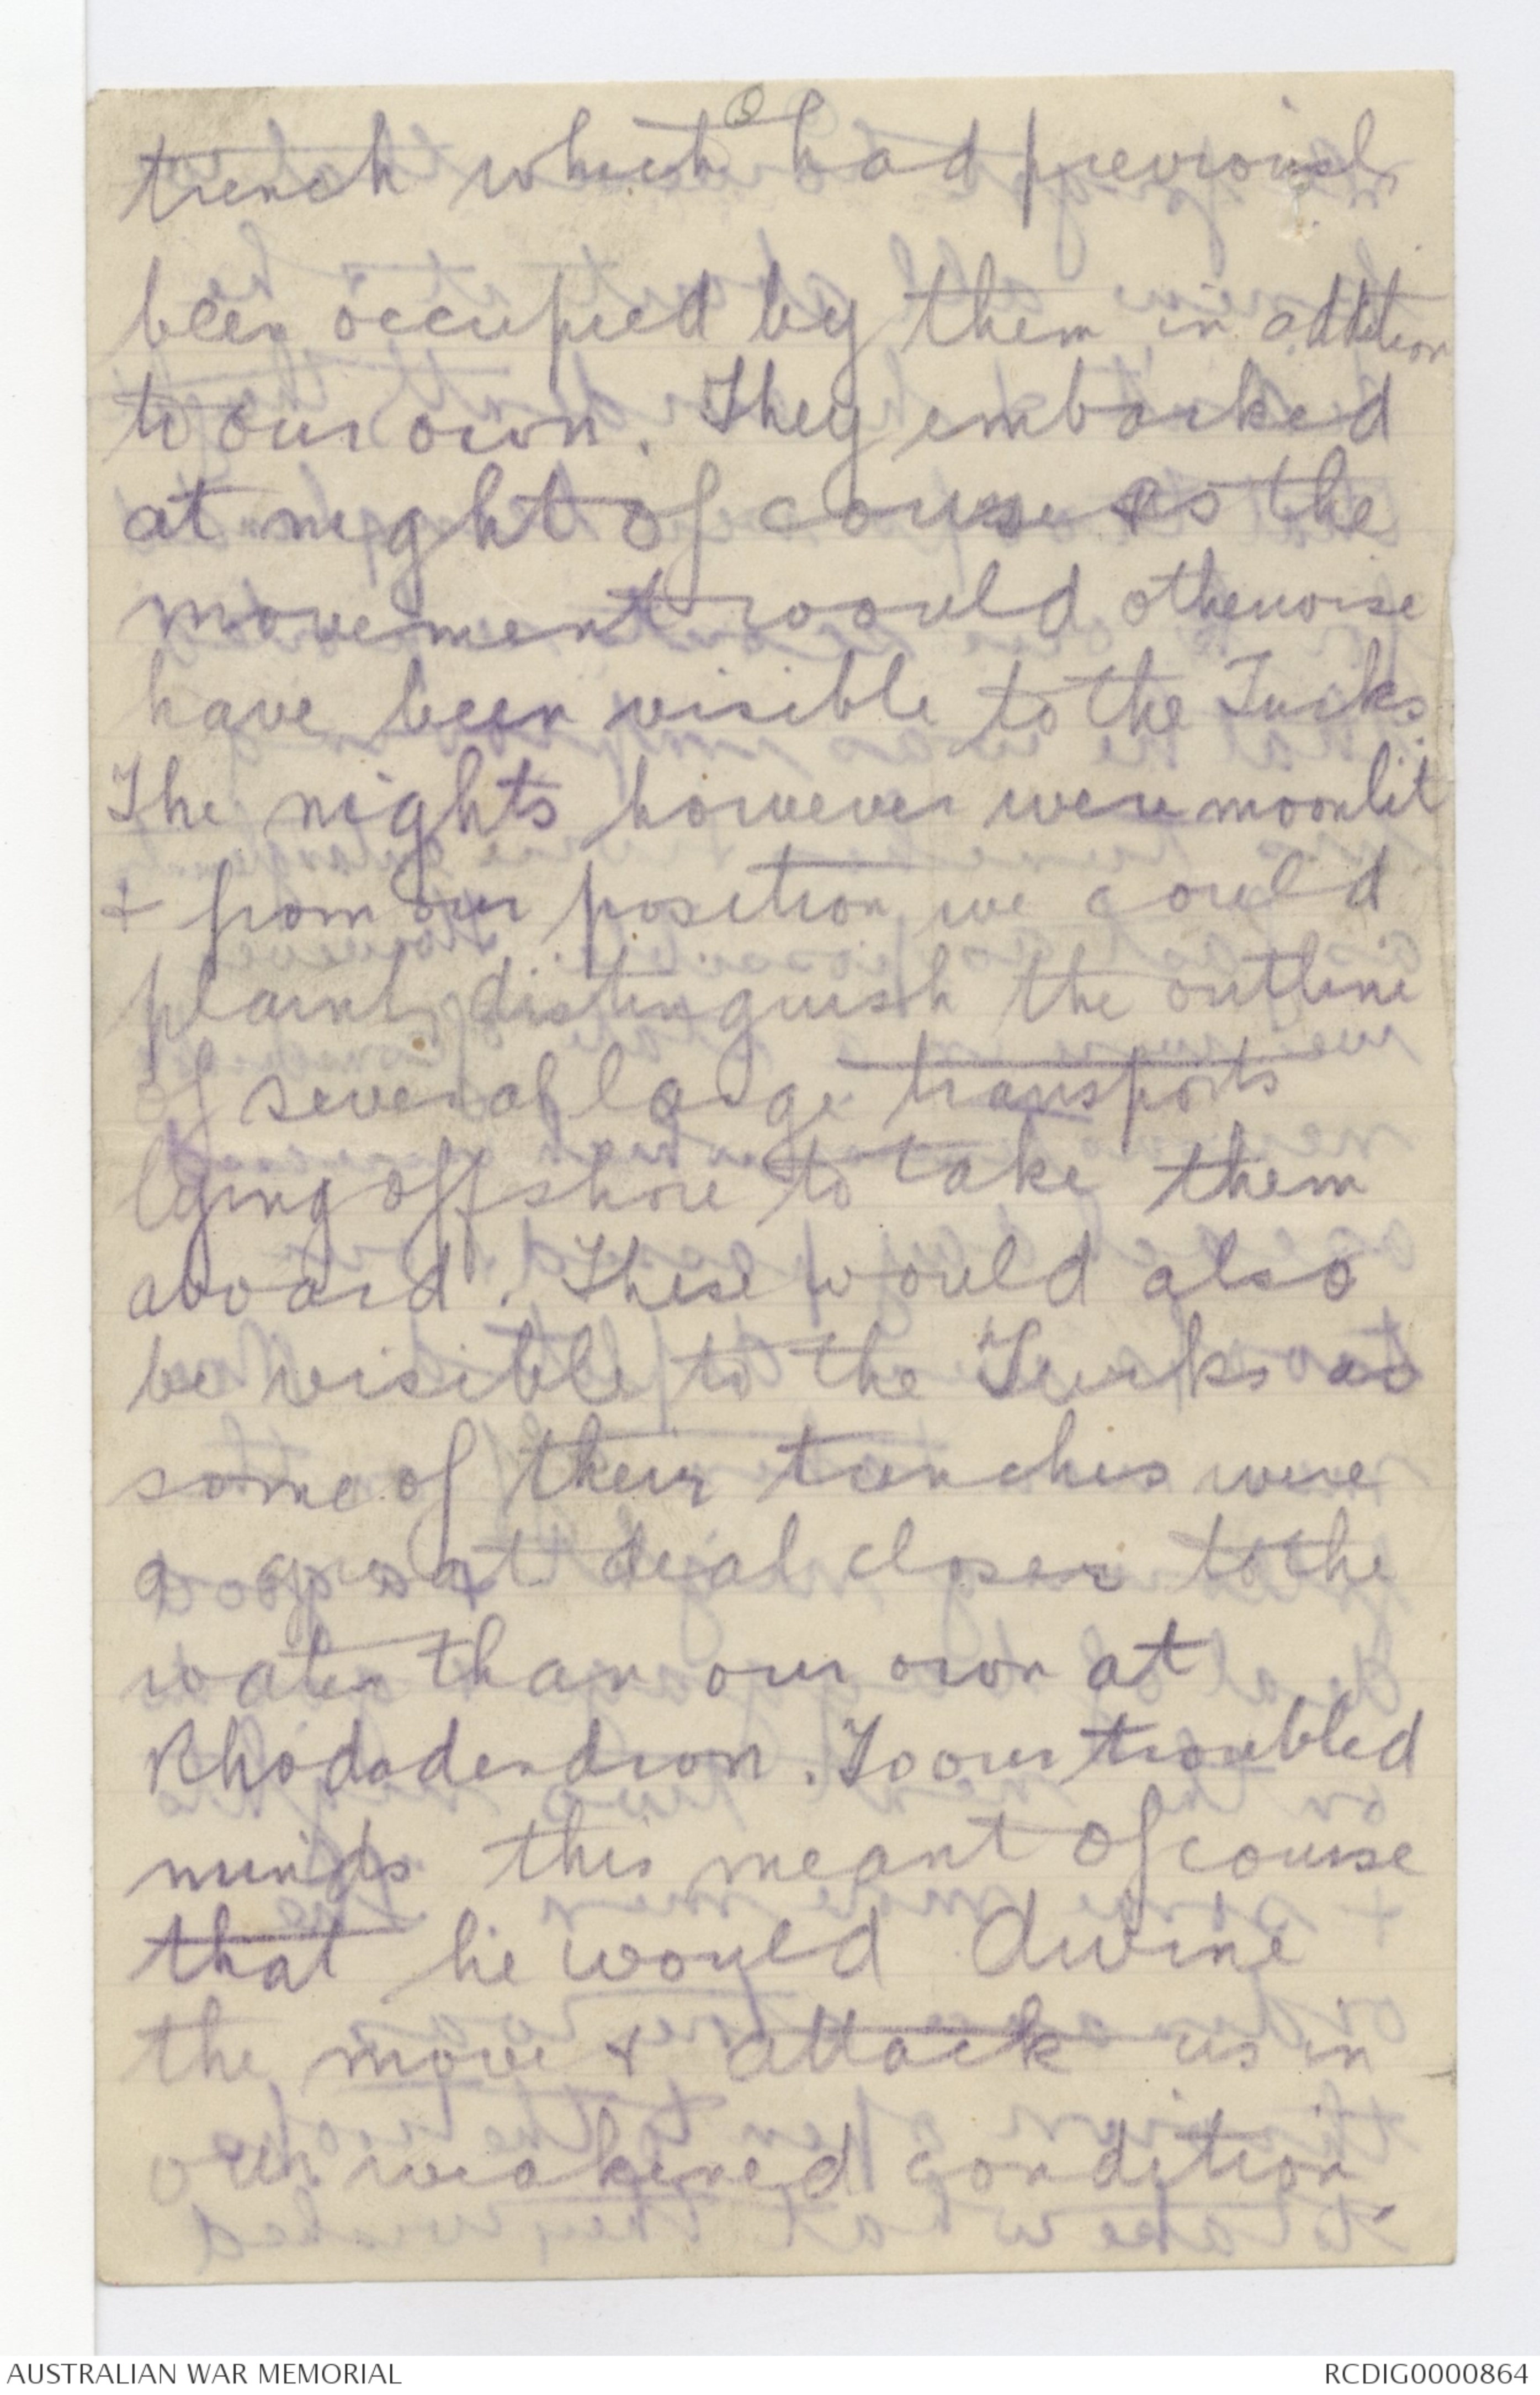 trench which had previously
been occupied by them in addition
to our own. They embarked
at night of course as the
movement would otherwise
have been visible to the Turks.
The nights however were moonlit
+ from our position we could
plainly distinguish the outline
of several large transports
lying off shore to take them
aboard. These would also
be visible to the Turks as
some of their trenches were
a great deal closer to the
water than our own at
Rhododendron. To our troubled
minds this meant of course
that he would divine
the move + attack us in
our weakened condition.
AUSTRALIAN WAR MEMORIAL
RCDIG0000864